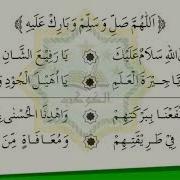 ﴿ اَللّٰهُمَّ صَلِّ وَسَلِّمْ وَبَارِكْ عَلَيْهِ ﴾
اللهِ سَلَامٌ عَلَيْكَ يَا رَفِيْعَ الشَّانِ
يَا جِيْرَةَ الْعَلَمِ يَا أُهَيْلَ الْجُوْدِ
بِبَرْكَتِهِمْ وَاهْدِنَا الْحُسْنٰى
فِيْ طَرِيْقَتِهِمْ وَمُعَافَاةٍ مِنَ